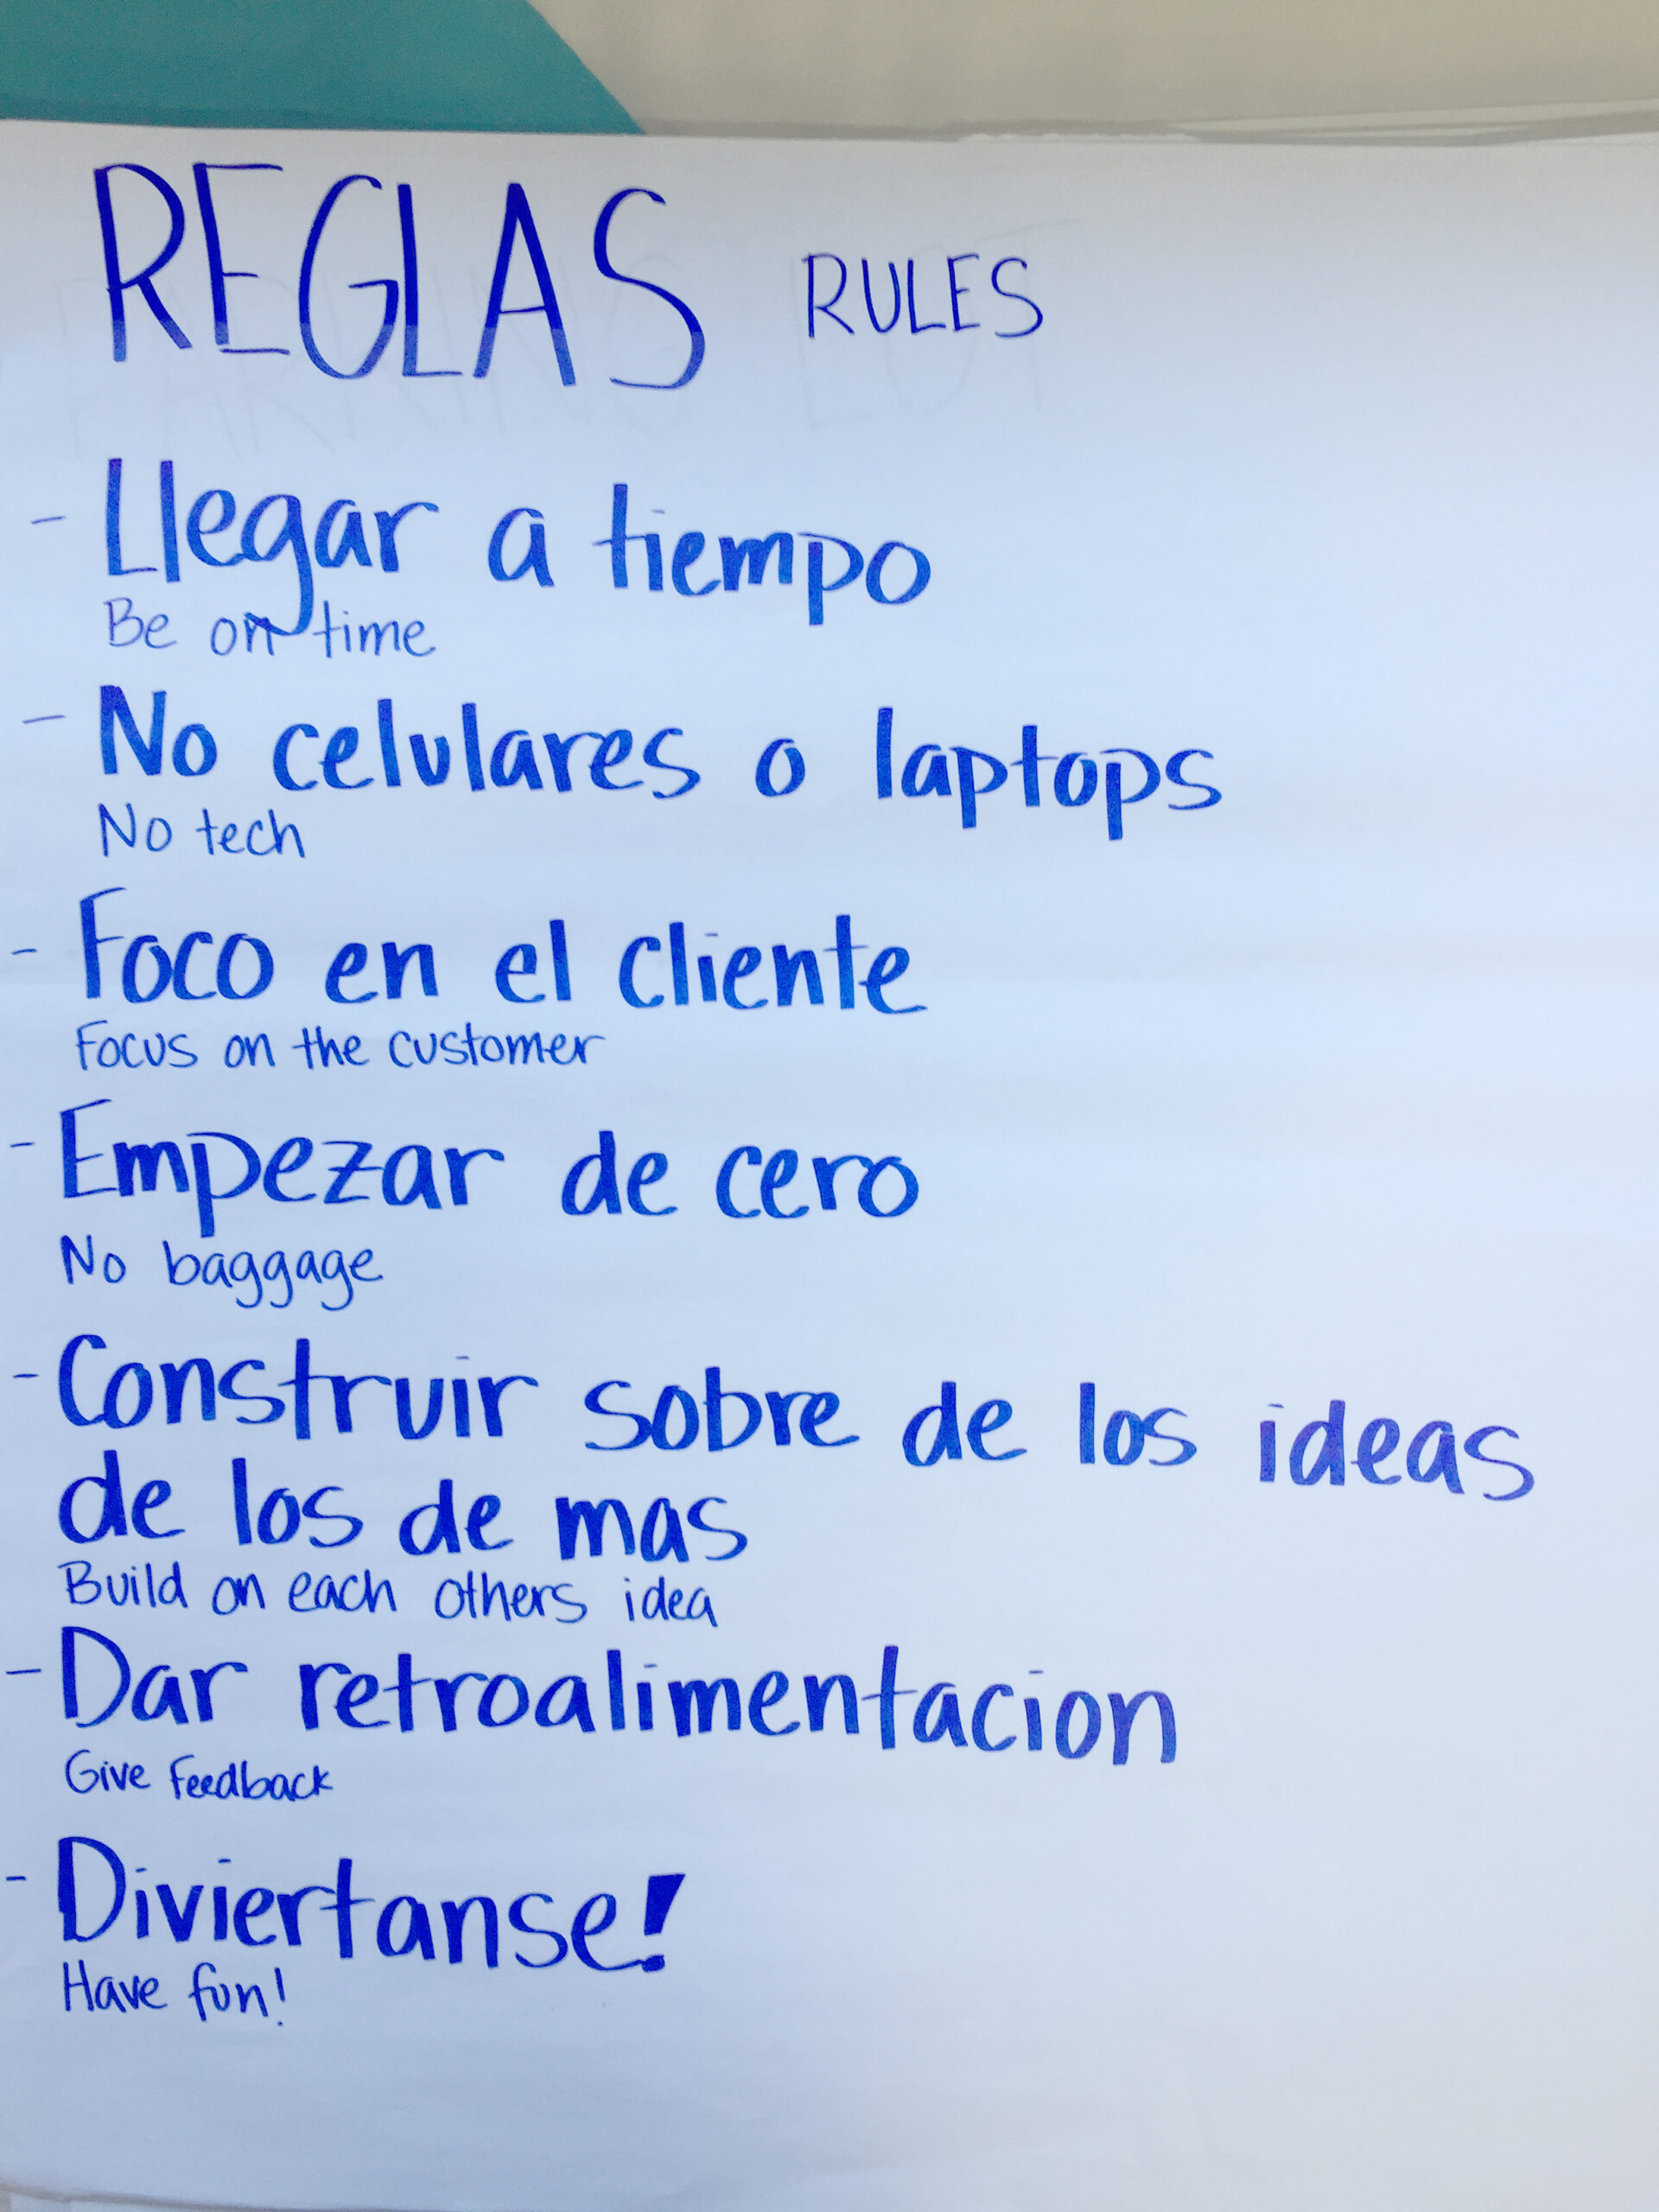 REGLAS RULES
- Llegar a tiempo
Be on time
- No celulares o laptops
No tech
- Foco en el cliente
Focus on the customer
- Empezar de cero
No baggage
- Construir sobre de los ideas
de los de mas
Build on each others idea
- Dar retroalimentacion
Give Feedback
- Diviertanse!
Have fun!